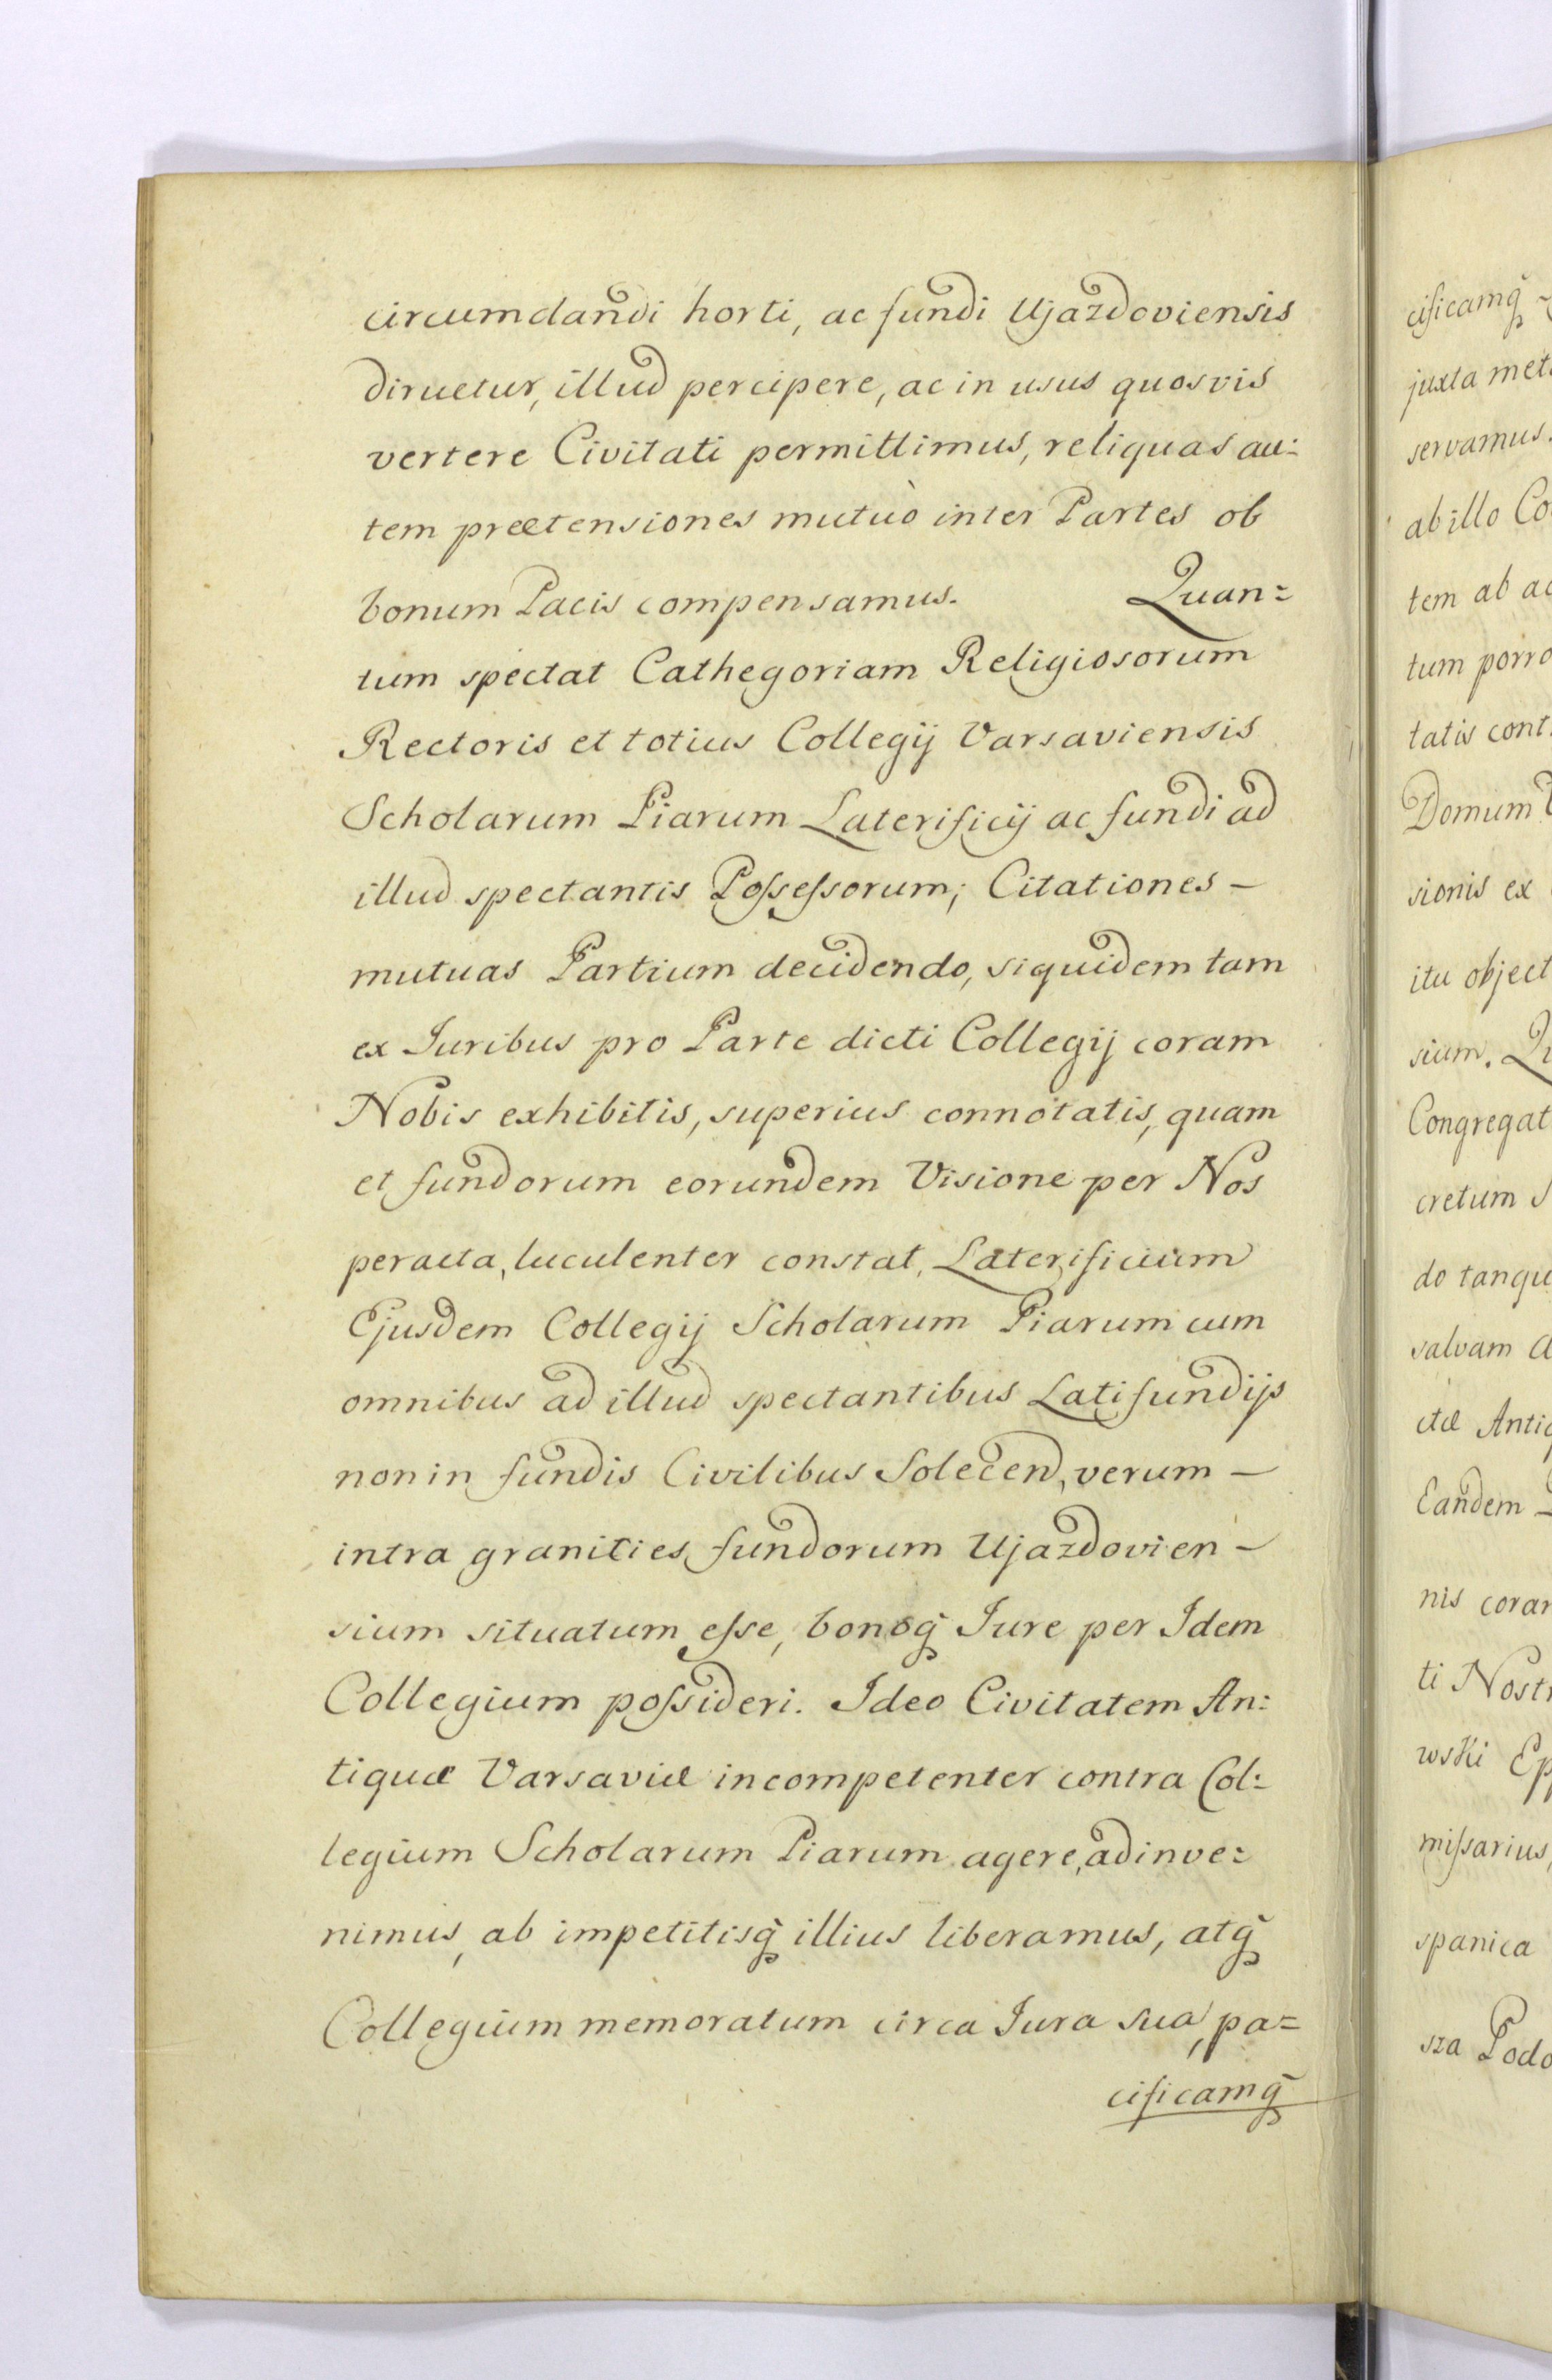 circumdandi horti, ac fundi Ujazdoviensis
diruetur, illud percipere, ac in usus quosvis
vertere Civitati permittimus, reliquas au:
tem prætensiones mutuò inter Partes ob
bonum Pacis compensamus. Quan=
tum spectat Cathegoriam Religiosorum
Rectoris et totius Collegij Varsaviensis
Scholarum Piarum Laterificij ac fundi ad
illud spectantis Poſseſsorum; Citationes –
mutuas Partium decidendo, siquidem tam
ex Juribus pro Parte dicti Collegij coram
Nobis exhibitis, superius connotatis, quam
et fundorum eorundem Visione per Nos
peracta, luculenter constat, Laterificium
Ejusdem Collegij Scholarum Piarum cum
omnibus ad illud spectantibus Latifundijs
non in fundis Civilibus Solecen, verum –
intra granities fundorum Ujazdovien –
sium situatum eſse, bonoq̃ Jure per Idem
Collegium poſsideri. Ideo Civitatem An:
tiquæ Varsaviæ incompetenter contra Col:
legium Scholarum Piarum agere, adinve=
nimus, ab impetitisq̃ illius liberamus, atq̃
Collegium memoratum circa Jura sua, pa=
cificamq̃
cificamq̃
juxta met
servamus.
ab illo Co
tem ab ac
tum porro
tatis cont
Domum
sionis ex
itu object
sium. Qu
Congregat
cretum S
do tanqu
salvam a
ctæ Antiq
Eandem
nis coram
ti Nostr
wski Ep
miſsarius,
spanica
sza Podo